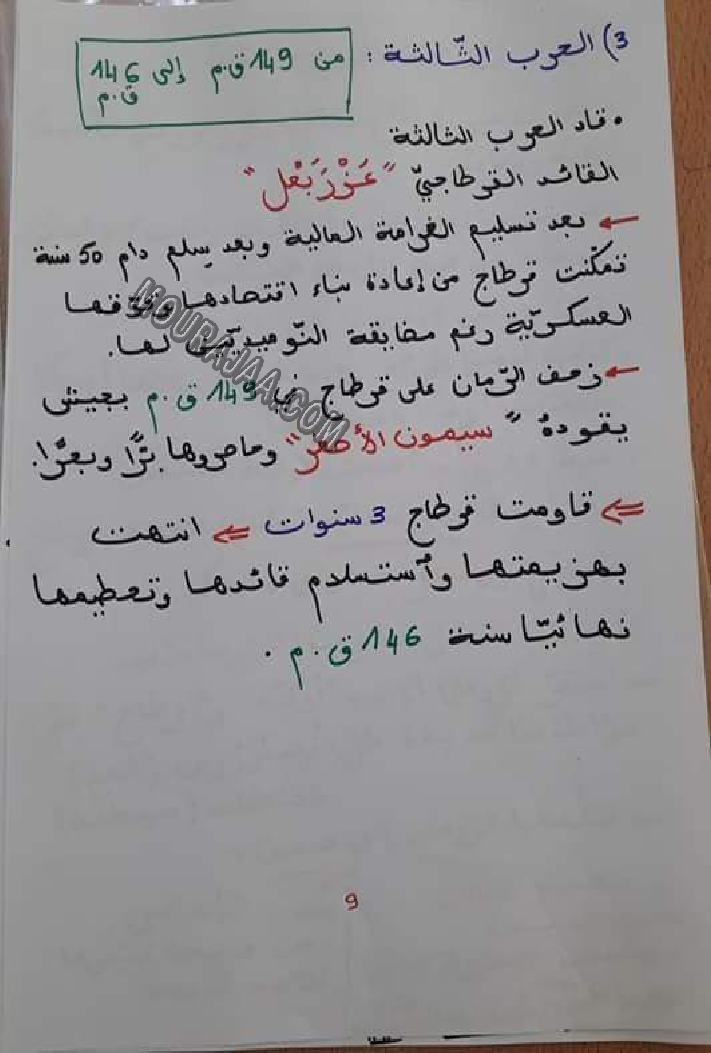 3) الحرب الثّالثة : من 149 ق.م إلى 146 ق.م
• قاد الحرب الثالثة
القائد القرطاجيّ "عَزْرَبَعْل"
← بعد تسليم الغرامة المالية وبعد سِلم دام 50 سنة
تمكّنت قرطاج من إعادة بناء اقتصادها وقوّتها
العسكريّة رغم مضايقة النّوميديّين لها.
← زحف الرّمان على قرطاج في 149 ق.م بجيش
يقودهُ "سيمون الأصغر" وحاصروها برًّا وبحرًا.
⇐ قاومت قرطاج 3 سنوات ⇐ انتهت
بهزيمتها وٱستسلام قائدها وتحطيمها
نهائيّا سنة 146 ق.م.
9
MOURAJAA.COM